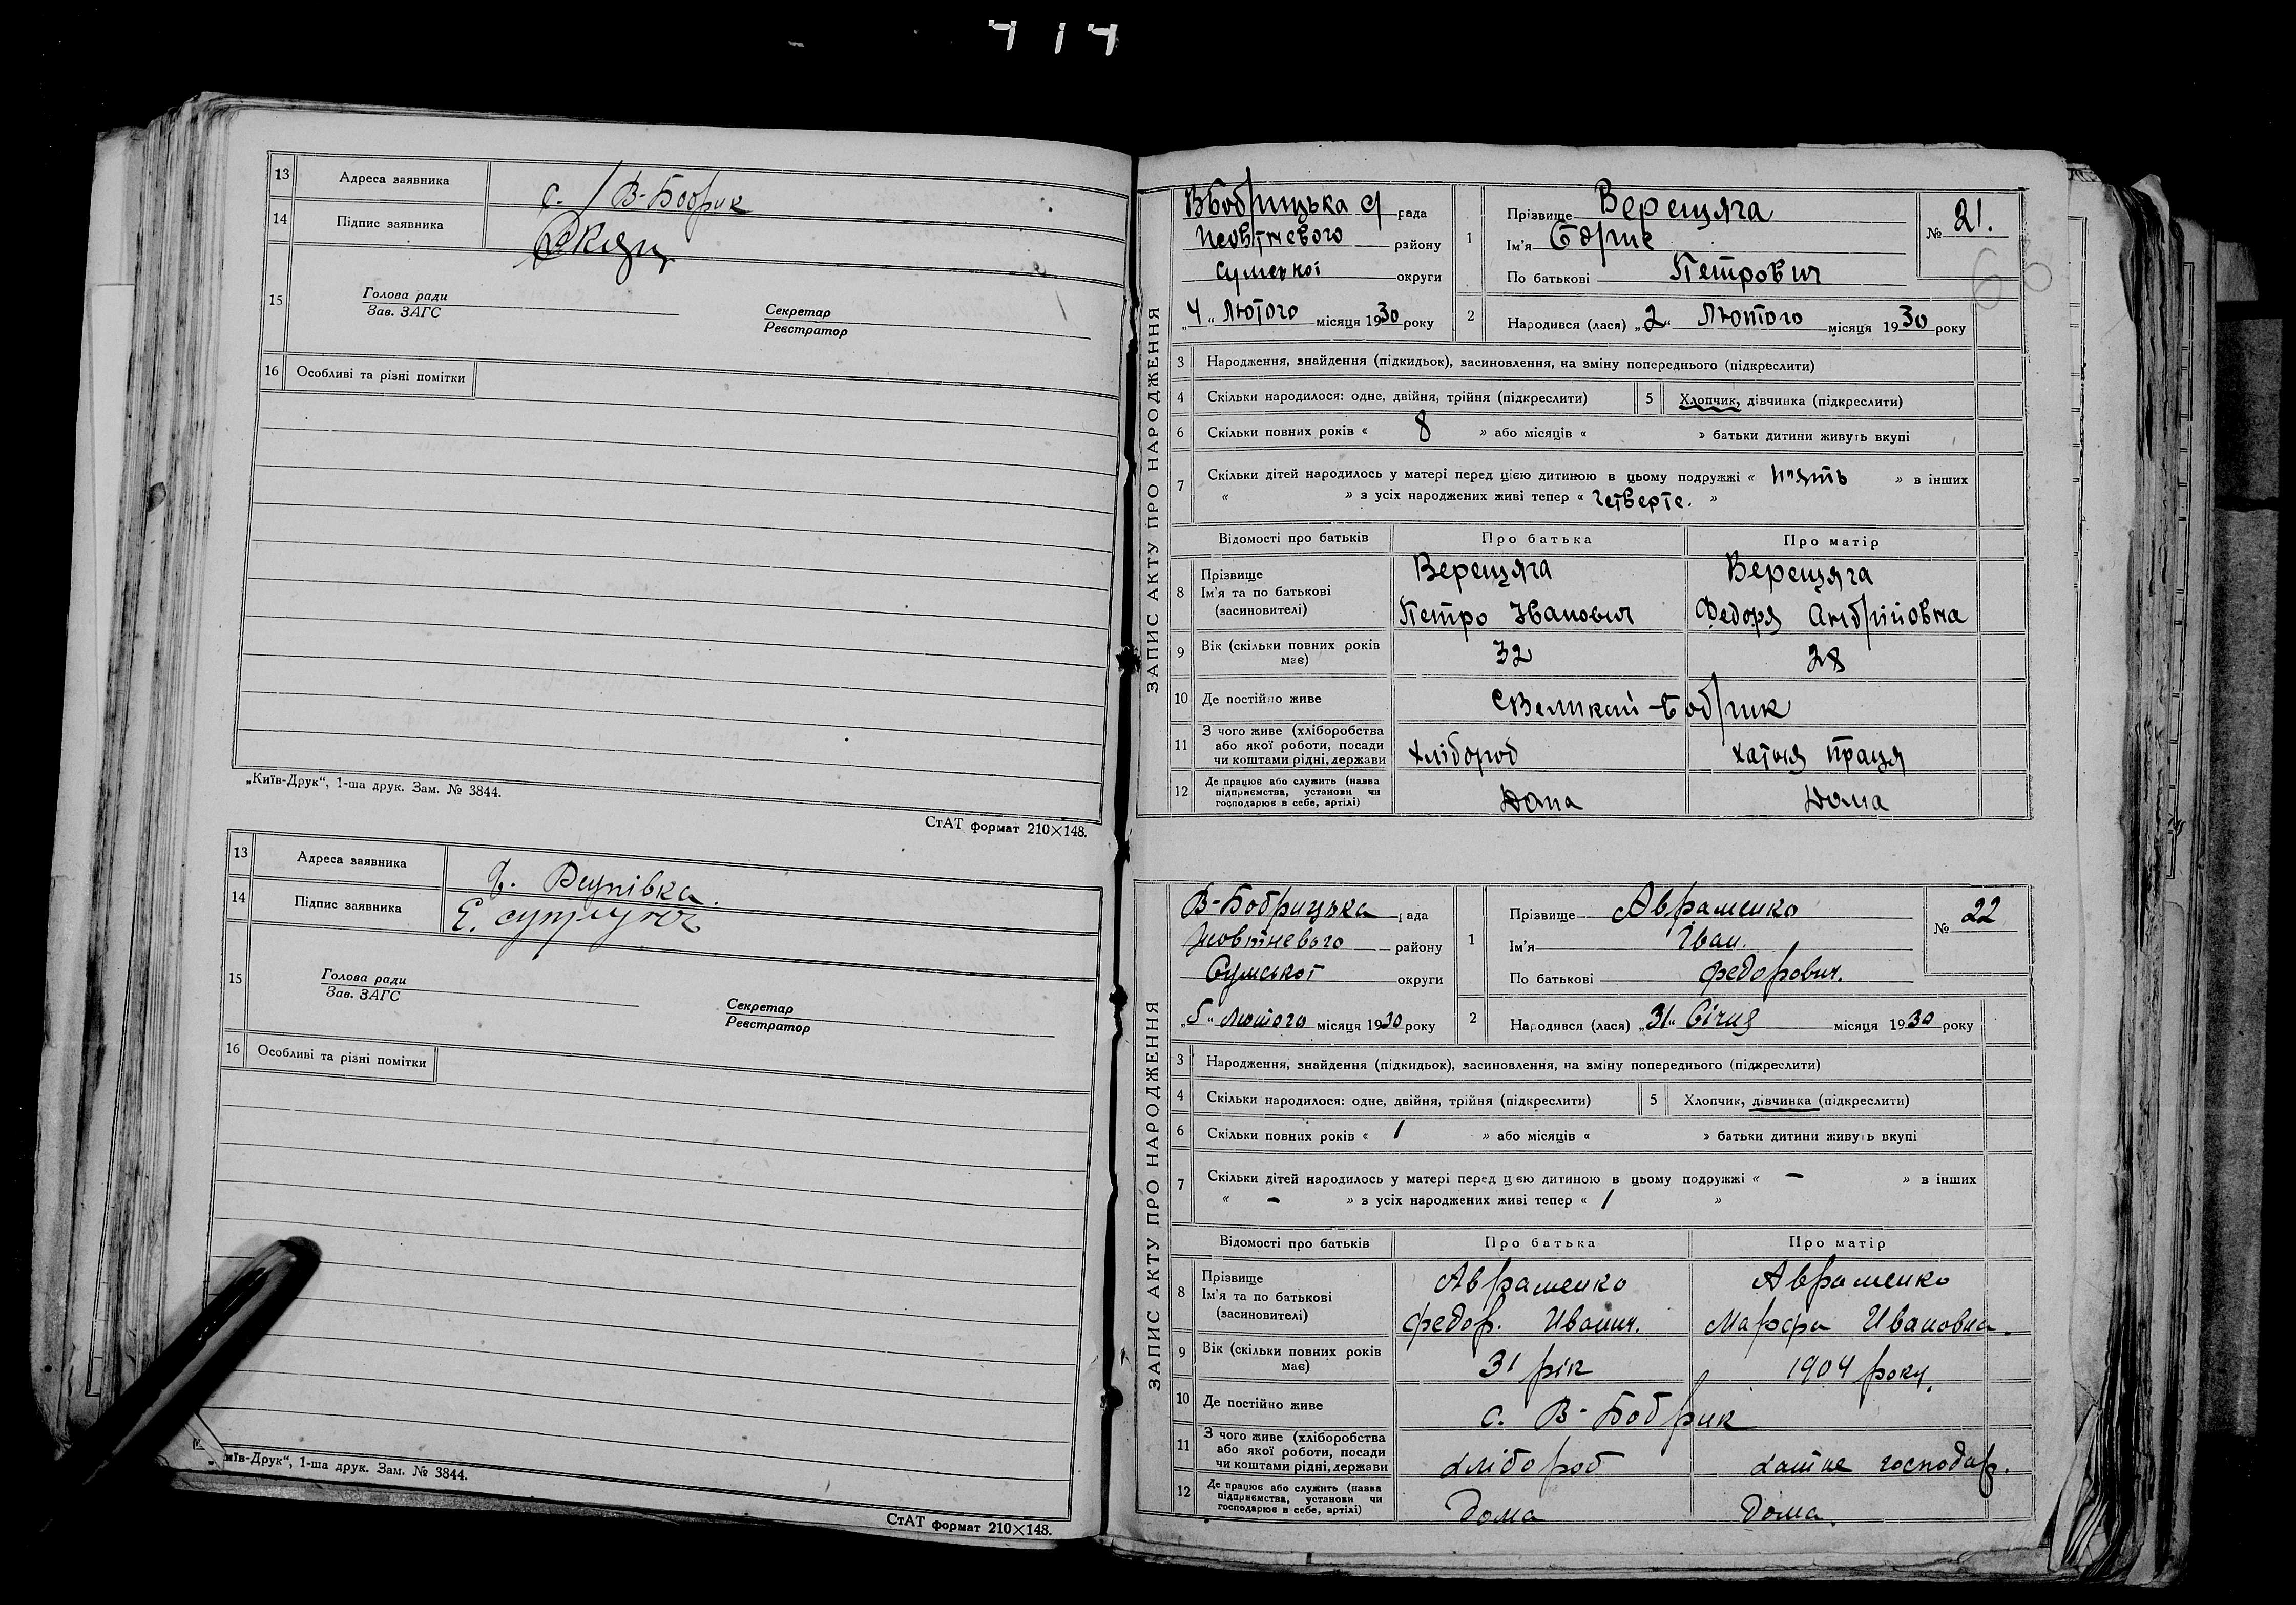 414
13 Адреса заявника с. В-Бобрик
14 Підпис заявника
15 Голова ради
Зав. ЗАГС
Секретар
Реєстратор
16 Особливі та різні помітки
„Київ-Друк“, 1-ша друк. Зам. № 3844.
СтАТ формат 210×148.
13 Адреса заявника
14 Підпис заявника Є.
15 Голова ради
Зав. ЗАГС
Секретар
Реєстратор
16 Особливі та різні помітки
иїв-Друк“, 1-ша друк. Зам. № 3844.
СтАТ формат 210×148.
ЗАПИС АКТУ ПРО НАРОДЖЕННЯ
Вбобрицька с/ рада
Жовтневого району
Сумської округи
„4“ Лютого місяця 1930 року
1 Прізвище Верещяга
Ім'я Борис
По батькові Петрович
№ 21.
2 Народився (лася) „2“ Лютого місяця 1930 року
3 Народження, знайдення (підкидьок), засиновлення, на зміну попереднього (підкреслити)
4 Скільки народилося: одне, двійня, трійня (підкреслити) 5 Хлопчик, дівчинка (підкреслити)
6 Скільки повних років « 8 » або місяців « » батьки дитини живуть вкупі
7 Скільки дітей народилось у матері перед цією дитиною в цьому подружжі « пять » в інших
« » з усіх народжених живі тепер « четверте. »
Відомості про батьків Про батька Про матір
8 Прізвище Верещяга Верещяга
Ім'я та по батькові
(засиновителі) Петро Іванович Федоря Андрійовна
9 Вік (скільки повних років має) 32 28
10 Де постійно живе с Великий-Бобрик
11 З чого живе (хліборобства
або якої роботи, посади
чи коштами рідні, держави хлібороб хатня праця
12 Де працює або служить (назва
підприємства, установи чи
господарює в себе, артілі) Дома Дома
ЗАПИС АКТУ ПРО НАРОДЖЕННЯ
В-Бобрицька рада
Жовтневого району
Сумської округи
„5“ Лютого місяця 1930 року
1 Прізвище Авраменко
Ім'я Іван.
По батькові Федорович.
№ 22
2 Народився (лася) „31“ Січня місяця 1930 року
3 Народження, знайдення (підкидьок), засиновлення, на зміну попереднього (підкреслити)
4 Скільки народилося: одне, двійня, трійня (підкреслити) 5 Хлопчик, дівчинка (підкреслити)
6 Скільки повних років « 1 » або місяців « » батьки дитини живуть вкупі
7 Скільки дітей народилось у матері перед цією дитиною в цьому подружжі « – » в інших
« – » з усіх народжених живі тепер « 1 »
Відомості про батьків Про батька Про матір
8 Прізвище Авраменко Авраменко
Ім'я та по батькові
(засиновителі) Федор. Иванич. Марфа Ивановна.
9 Вік (скільки повних років має) 31 рік 1904 року.
10 Де постійно живе с. В-Бобрик
11 З чого живе (хліборобства
або якої роботи, посади
чи коштами рідні, держави хлібороб хатнє господар.
12 Де працює або служить (назва
підприємства, установи чи
господарює в себе, артілі) Дома Дома.